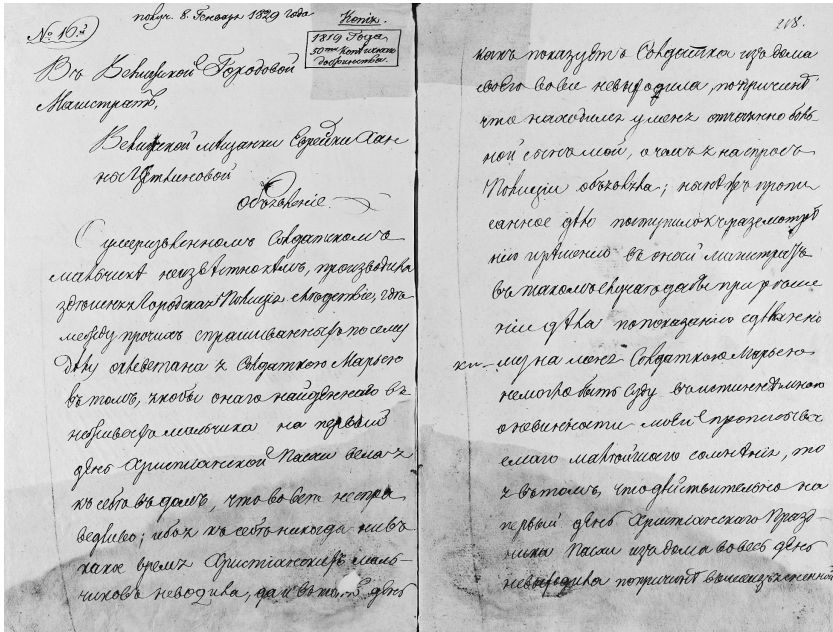 получ. 8. Генваря 1829 года
Копія.
218.
№ 16.й
1819 Года
50ти копѣекъ
достоинства.
Въ Велижской Городовой
Магистратъ,
Велижской мѣщанки Еврейки Хан
ны Цетлиновой
Объявленіе.
О умерщвленномъ Солдатскомъ
мальчикѣ неизвѣстно кемъ, производила
здѣшняя Городская Полиція слѣдствіе, гдѣ
между прочихъ спрашиванныхъ по сему
дѣлу оклеветана я Солдаткою Марьею
въ томъ, якобы онаго найденнаго въ
неживыхъ мальчика на первый
день Христіанской Пасхи вела я
къ себѣ въ домъ, что во вся неспра
ведливо; ибо я къ себѣ никогда ни въ
какое время Христіанскихъ маль-
чиковъ неводила, да и въ тотъ день
какъ показуетъ Солдатка изъ дома
своего вовся невыходила, по причинѣ
что находился у меня отчаянно боль
ной сынъ мой, о чемъ я на спросъ
Полиціи объявила; нынѣ жъ пропи
санное дѣло поступило къ разсмотрѣ
нію и рѣшенію въ оной магистратъ
въ такомъ случаѣ дабы при рѣше
ніи дѣла по показанію сдѣланно
му на меня Солдаткою Марьею
немогло быть Суду въ истинѣ мною
о невинности моей прописывае
емаго малѣйшаго сомнѣнія, то
я въ томъ, что дѣйствительно на
первый день Христіанскаго Празд-
ника Пасхи изъ дома во весь день
невыходила по причинѣ вышеизъясненной